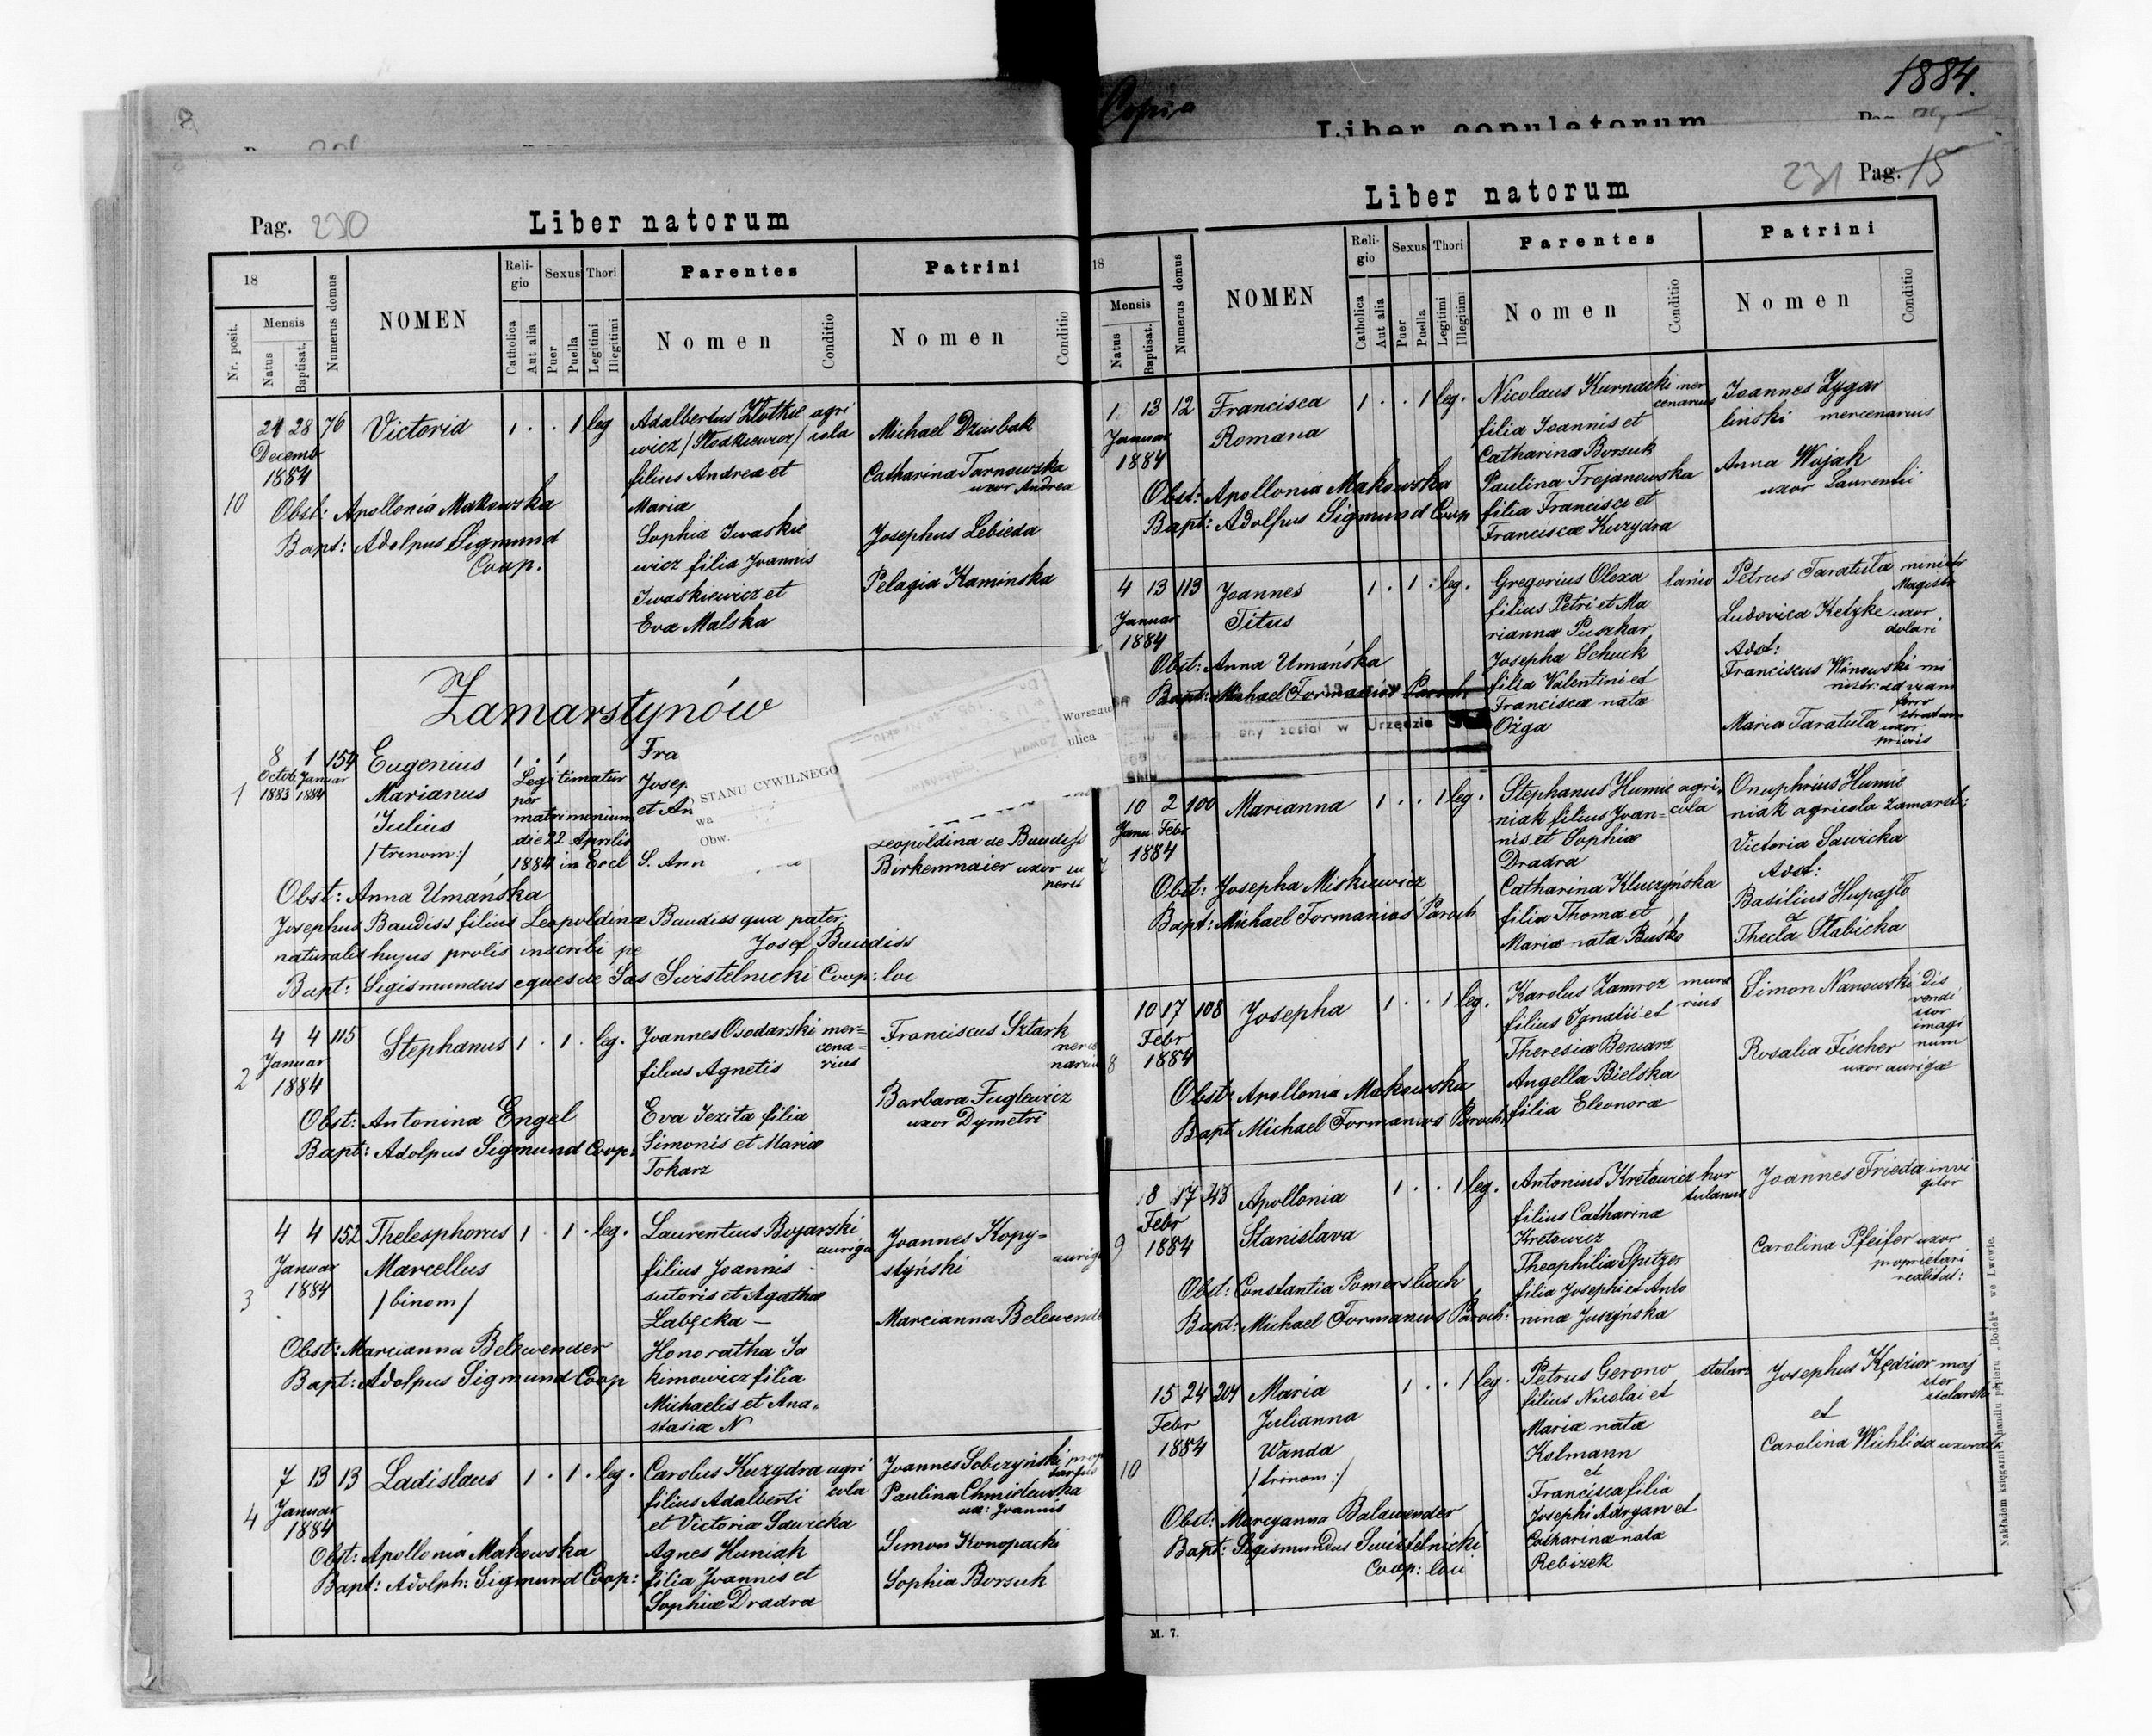 Copia
1884.
Liber copulatorum
Pag. 230
Liber natorum
18
Nr. posit.
Mensis
Natus
Baptisat.
Numerus domus
NOMEN
Religio
Catholica
Aut alia
Sexus
Puer
Puella
Thori
Legitimi
Illegitimi
Parentes
Nomen
Conditio
Patrini
Nomen
Conditio
10
24 28 76 Victoria 1 . . 1 leg
Decemb
1884
Obst: Apollonia Makowska
Bapt: Adolpus Sigmund
Coop.
Adalbertus Zlotkie agri
wicz /Slodkiewicz/ cola
filius Andrea et
Maria
Sophia Iwaskie
wicz filia Joannis
Iwaskiewicz et
Eva Malska
Michael Dziubak
Catharina Tarnowska
uxor Andrea
Josephus Lebieda
Pelagia Kaminska
Zamarstynów
1
8 1 154 Eugenius 1 . 1
Octob Januar
1883 1884
Marianus
Julius
/trinom:/
Legitimatur
per
matrimonium
die 22 Aprilis
1884 in Eccl
S. Ann
Fra
Josep
et An
STANU CYWILNEGO
wa
Obw.
Warszaw
ulica
Leopoldina de Baudiss
Birkenmaier uxor
Obst: Anna Umańska
Josephus Baudiss filius Leopoldinæ Baudiss qua pater
naturalis hujus prolis inscribi pe
Josef Baudiss
Bapt: Sigismundus eques de Sas Swistelnicki Coop: loc
2
4 4 115 Stephanus 1 . 1 . leg.
Januar
1884
Obst: Antonina Engel
Bapt: Adolpus Sigmund Coop:
Joannes Osodarski mer=
cena=
rius
filius Agnetis
Eva Jezita filia
Simonis et Maria
Tokarz
Franciscus Sztark
Barbara Fuglewicz
uxor Dymetri
3
4 4 152 Thelesphorus 1 . 1 . leg.
Januar
1884
Marcellus
/binom/
Obst: Marcianna Belewender
Bapt: Adolpus Sigmund Coop
Laurentius Bojarski
auriga
filius Joannis
sutoris et Agatha
Łabęcka —
Honoratha Ja
kimowicz filia
Michaelis et Ana=
stasia N
Joannes Kopy=
styński auriga
Marcianna Belewende
4
7 13 13 Ladislaus 1 . 1 . leg.
Januar
1884
Obst: Apollonia Makowska
Bapt: Adolph: Sigmund Coop:
Carolus Kuzydra agri
cola
filius Adalberti
et Victoria Sawicka
Agnes Huniak
filia Joannis et
Sophia Dradra
Joannes Sobczyński
Paulina Chmielewska
Joannis
Simon Konopacki
Sophia Borsuk
231 Pag. 15
Liber natorum
18
Mensis
Natus
Baptisat.
Numerus domus
NOMEN
Religio
Catholica
Aut alia
Sexus
Puer
Puella
Thori
Legitimi
Illegitimi
Parentes
Nomen
Conditio
Patrini
Nomen
Conditio
1 13 12 Francisca 1 . . 1 leg.
Januar
1884
Romana
Obst: Apollonia Makowska
Bapt: Adolfus Sigmund Coop
Nicolaus Kurnacki mer
cenarius
filia Joannis et
Catharina Borsuk
Paulina Trojanowska
filia Francisci et
Francisca Kuzydra
Joannes Zygar
linski mercenarius
Anna Wojak
uxor Laurentii
4 13 113 Joannes 1 . 1 . leg.
Januar
1884
Titus
Obst: Anna Umańska
Bapt: Michael Formanios Paroch
Gregorius Olexa lanio
filius Petri et Ma
rianna Puszkar
Josepha Schuck
filia Valentini et
Francisca nata
Ożga
Petrus Taratuta ministr
Magistr
Ludovica Ketzke uxor
Adst:
Franciscus Winowski mi
nistr: ad viam
ferro
Maria Taratuta uxor
prioris
został w Urzędzie
10 2 100 Marianna 1 . . 1 leg.
Janu Febr
1884
Obst: Josepha Miskiewicz
Bapt: Michael Formanios Paroch
Stephanus Humie agri
niak filius Joan= cola
nis et Sophia
Dradra
Catharina Kluczyńska
filia Thoma et
Maria nata Buśko
Onuphrius Humie
niak agricola Zamarst:
Victoria Sawicka
Adst:
Basilius Hupajło
Thecla Słabicka
8
10 17 108 Josepha 1 . . 1 leg.
Febr
1884
Obst: Apollonia Makowska
Bapt Michael Formanios Paroch:
Karolus Zamroz mura
rius
filius Ignatii et
Theresia Beniarz
Angella Bielska
filia Eleonora
Simon Nanowski dis
vendi
tor
imagi
num
Rosalia Fischer
uxor auriga
9
8 17 43 Apollonia 1 . . 1 leg.
Febr
1884
Stanislava
Obst: Constantia Pomersbach
Bapt: Michael Formanios Paroch:
Antonius Kretowicz hor
tulanus
filius Catharina
Kretowicz
Theophilia Spitzer
filia Josephi et Anto
nina Juszyńska
Joannes Frieda invi
gilor
Carolina Pfeifer uxor
proprietari
realitat:
10
15 24 204 Maria 1 . . 1 leg.
Febr
1884
Julianna
Wanda
/trinom:/
Obst: Marcyanna Balawender
Bapt: Sigismundus Swistelnicki
Coop: loci
Petrus Gerono stolarz
filius Nicolai et
Maria nata
Kolmann
et
Francisca filia
Josephi Adrgan et
Catharina nata
Rebizek
Josephus Kędzior maj
ster
stolarski
et
Carolina Wichlida uxor
M. 7.
Nakładem księgarni i handlu papieru „Bodek" we Lwowie.